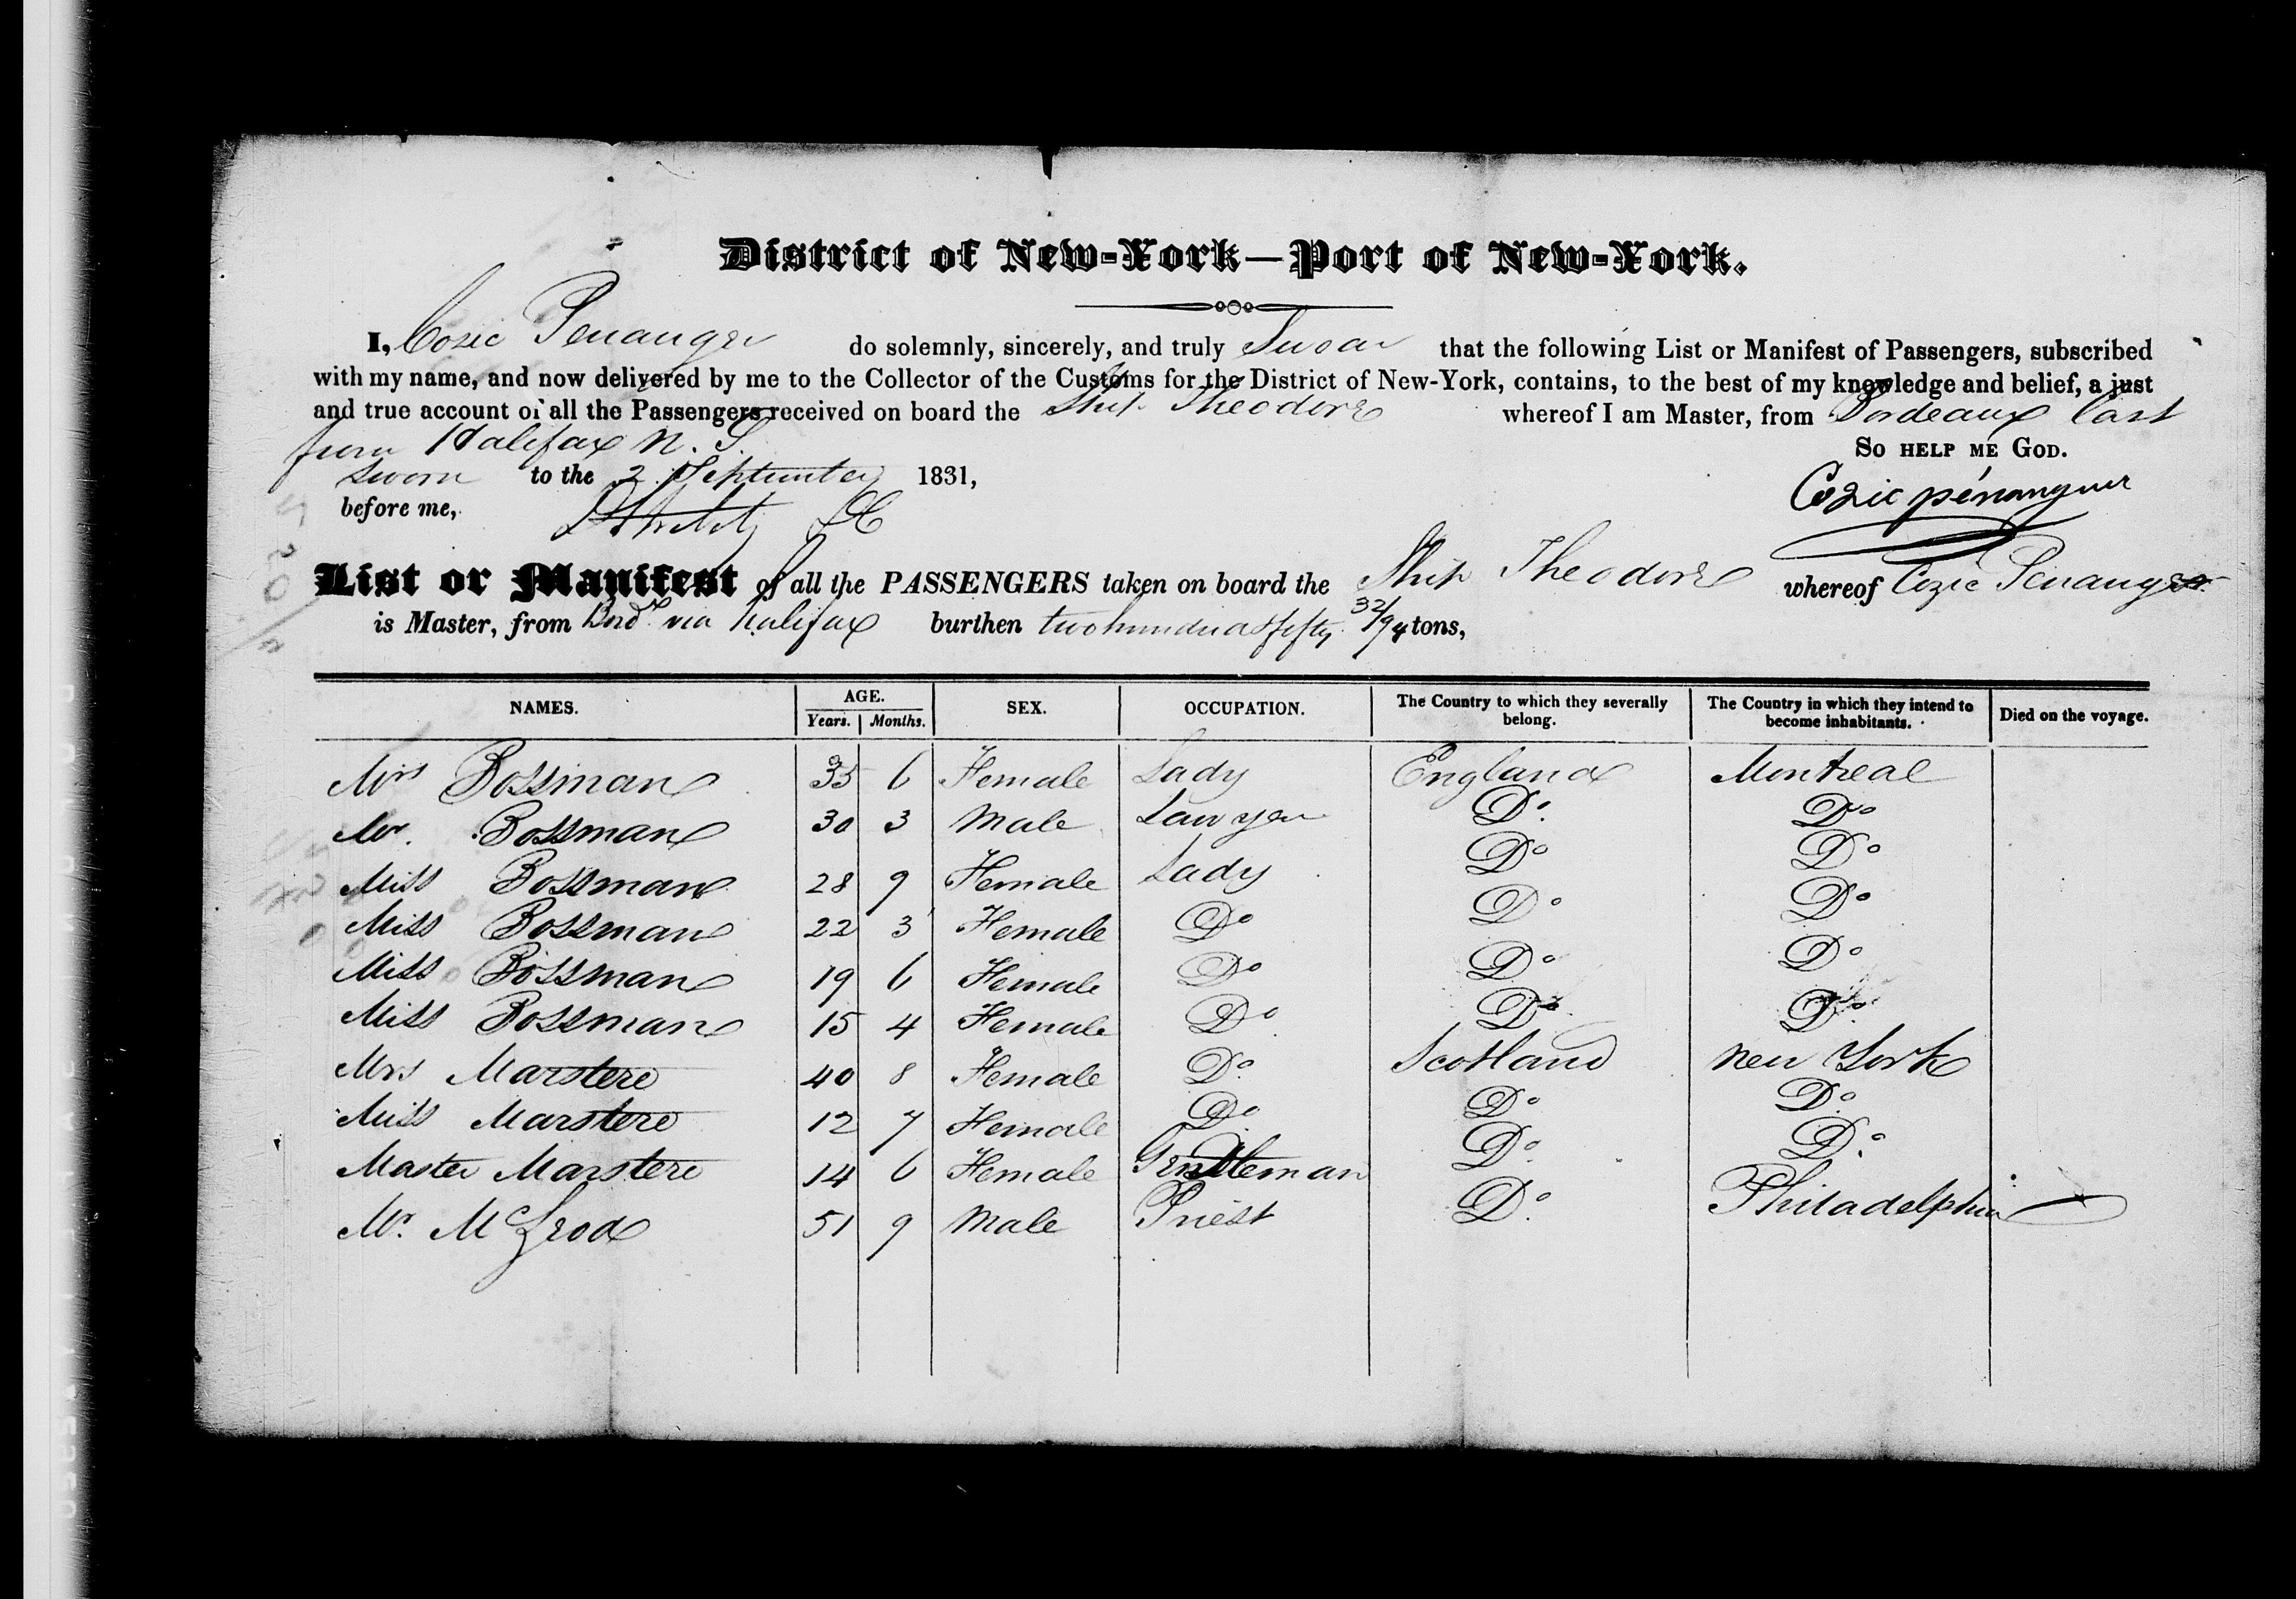 District of New-York—Port of New-York.
I, Cozic Penanger do solemnly, sincerely, and truly Swear that the following List or Manifest of Passengers, subscribed
with my name, and now delivered by me to the Collector of the Customs for the District of New-York, contains, to the best of my knowledge and belief, a just
and true account of all the Passengers received on board the Ship Theodore whereof I am Master, from Bordeaux last
from Halifax N. S.
So help me God.
Sworn to the 2 September 1831,
Cozic pénanguer
before me,
List or Manifest of all the PASSENGERS taken on board the Ship Theodore whereof Cozic Penanger
is Master, from Bordx via halifax burthen two hundred & fifty 32/94 tons,
NAMES. AGE. Years. Months. SEX. OCCUPATION. The Country to which they severally belong. The Country in which they intend to become inhabitants. Died on the voyage.
Mrs Bossman 35 6 Female Lady England Montreal
Mr. Bossman 30 3 Male Lawyer Do. Do
Miss Bossman 28 9 Female Lady Do Do
Miss Bossman 22 3 Female Do Do Do
Miss Bossman 19 6 Female Do Do Do
Miss Bossman 15 4 Female Do Do Do
Mrs Marstere 40 8 Female Do Scotland New York
Miss Marstere 12 7 Female Do Do Do
Master Marstere 14 6 Female Gentleman Do Do
Mr. McLeod 51 9 Male Priest Do. Philadelphia